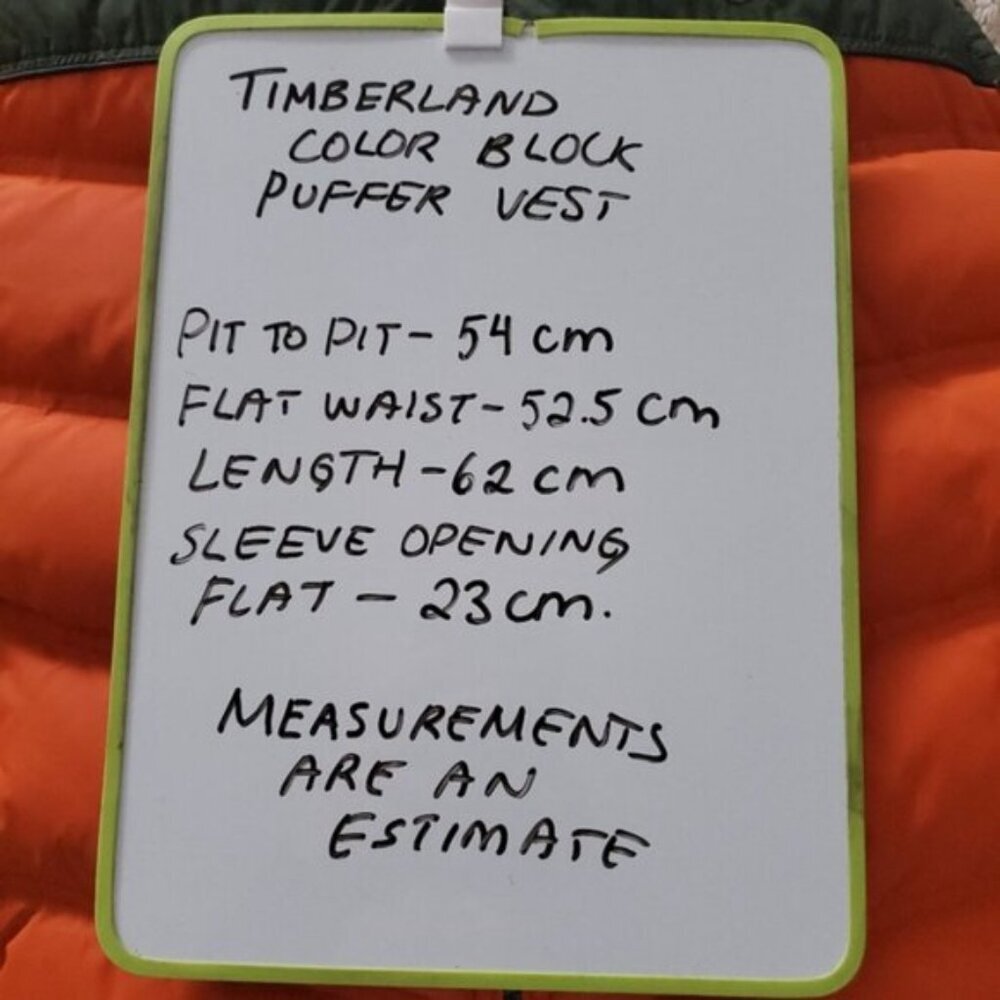 TIMBERLAND
COLOR BLOCK
PUFFER VEST
PIT TO PIT - 54 cm
FLAT WAIST - 52.5 cm
LENGTH - 62 cm
SLEEVE OPENING
FLAT - 23 cm.
MEASUREMENTS
ARE AN
ESTIMATE